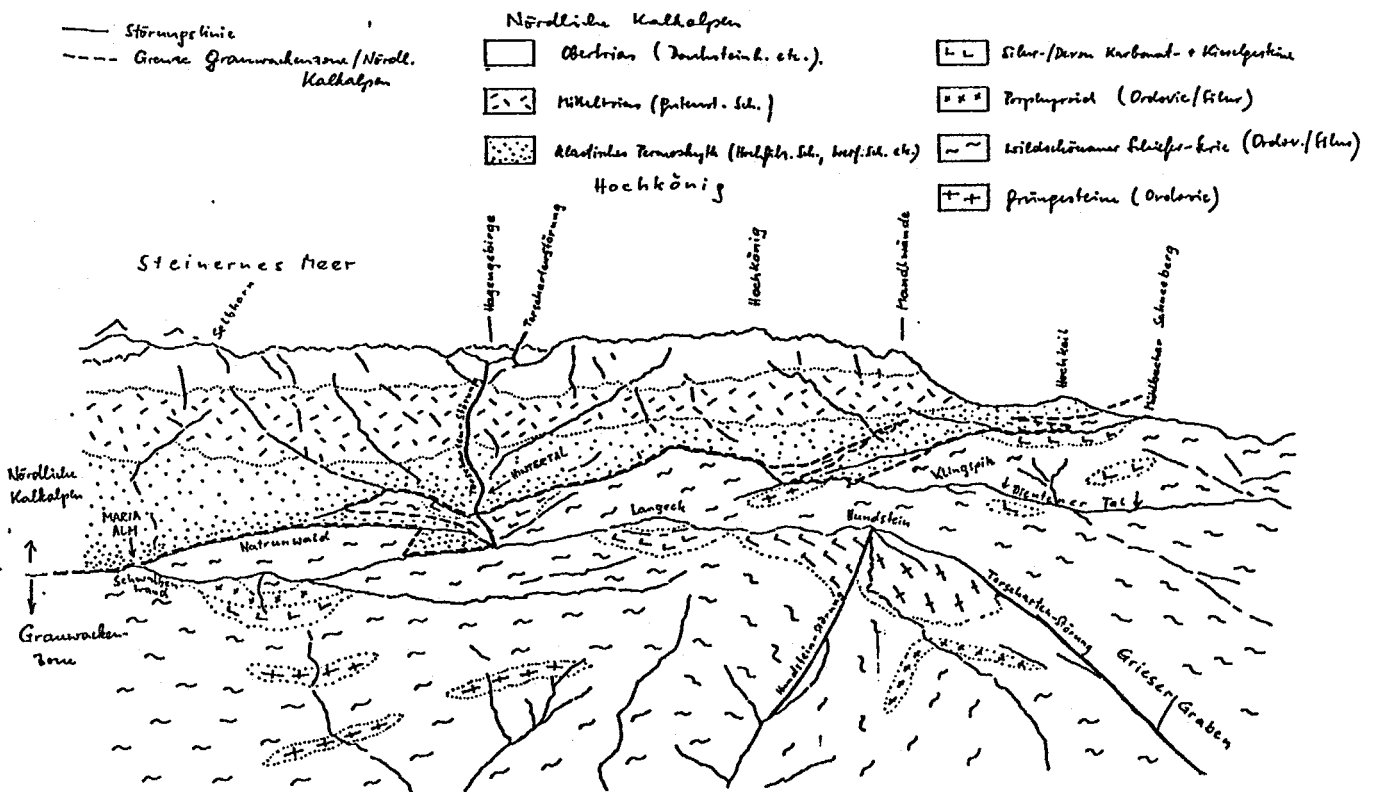 Störungslinie
Grenze Grauwackenzone/Nördl.
Kalkalpen
Nördliche Kalkalpen
Obertrias (Dachsteink. etc.).
Mitteltrias (Gutenst. Sch.)
Klastisches Permoskyth (Hochfilz. Sch., Werf. Sch. etc.)
Silur-/Devon Karbonat- + Kieselgesteine
Porphyroid (Ordovic/Silur)
Wildschönauer Schiefer-Serie (Ordov./Silur)
Grüngesteine (Ordovic)
Hochkönig
Steinernes Meer
Selbhorn
Hagengebirge
Torschartenstörung
Hochkönig
Mandlwände
Hochkeil
Mühlbacher Schneeberg
Nördliche
Kalkalpen
MARIA
ALM
Natrunwald
HINTERTAL
Langeck
Hundstein
Klingspitz
Dientener Tal
Schwalben-
wand
Grauwacken-
zone
Hundstein-Störung
Torscharten-Störung
Grieser Graben